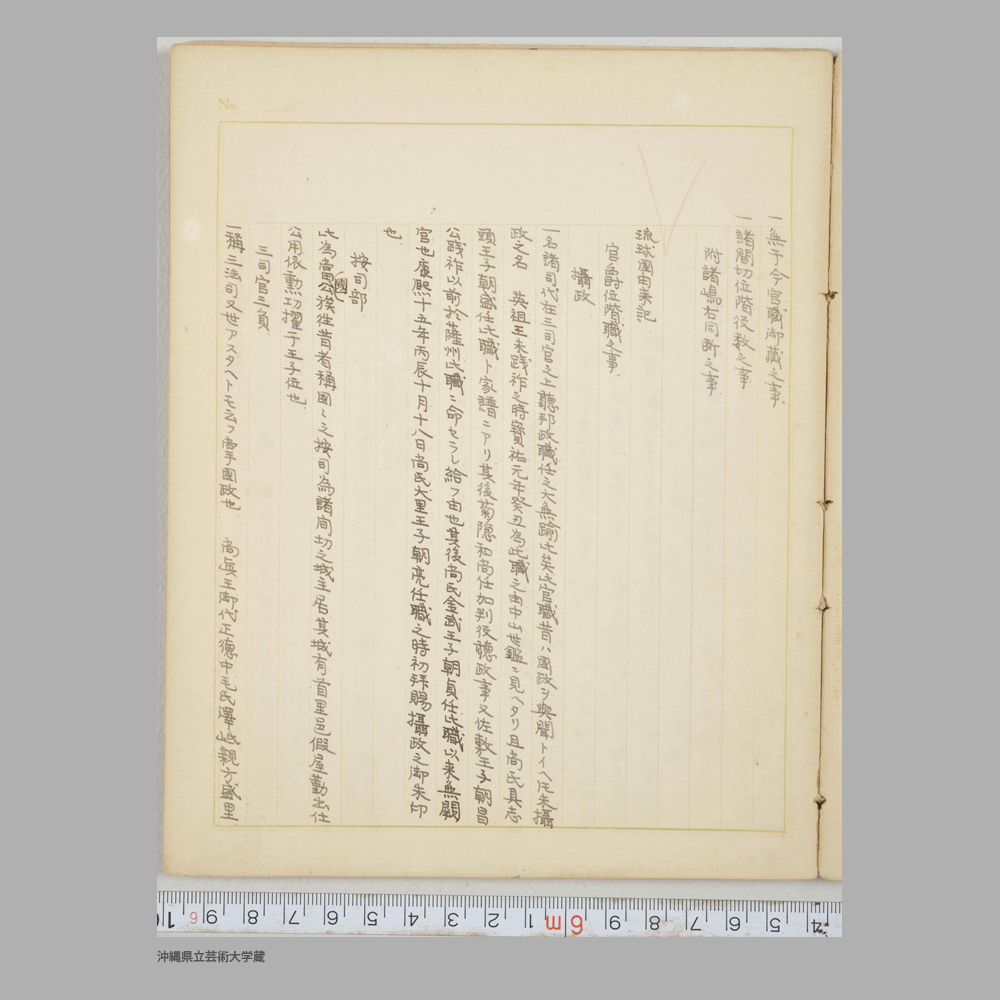 No.
一無于今官職御蔵之事
一諸間切位階役数之事
附諸嶋右同断之事
琉球國由来記
官爵位階職之事
攝政
一名諸司代在三司官之上聽邦政職任之大無踰此矣此官職昔ハ國政ヲ與聞トイヘ𪜈未攝
政之名 英祖王未践祚之時寳祐元年癸丑為此職之由中山世鑑ニ見ヘタリ且尚氏具志
頭王子朝盛任此職ト家譜ニアリ其後菊隠和尚任加判役聽政事又佐敷王子朝昌
公践祚以前於薩州此職ニ命セラレ給フ由也其後尚氏金武王子朝貞任此職以来無闕
官也康熈十五年丙辰十月十八日尚氏大里王子朝亮任職之時初拜賜攝政之御朱印
也
按司部
國
此為當公侯往昔者稱國々之按司為諸間切之城主居其城有首里邑假屋勤出仕
公用依勲功擢于王子位也
三司官三員
一稱三法司又世アスタヘトモ云フ掌國政也 尚眞王御代正徳中毛氏澤岻親方盛里
01 6 9 8 7 6 5 4 3 2 1 6m 9 8 7 6 5 4
沖縄県立芸術大学蔵